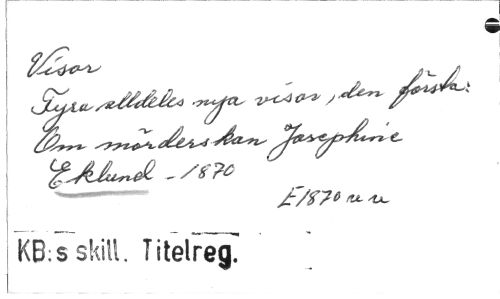 Visor
Fyra alldeles nya visor, den första:
Om mörderskan Josephine
Eklund - 1870
E1870 u u
KB:s skill. Titelreg.